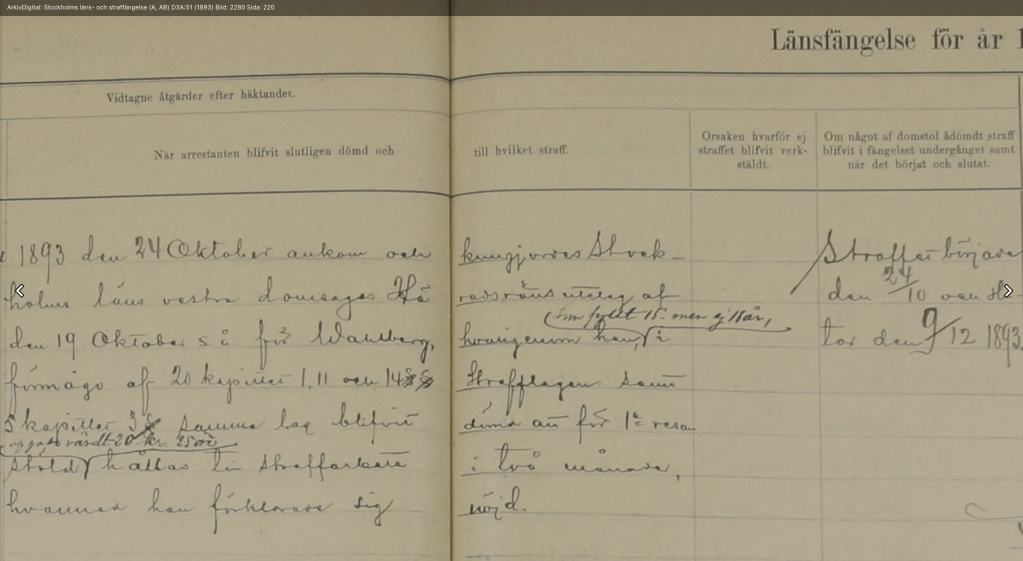 ArkivDigital: Stockholms läns- och straffängelse (A, AB) D3A:51 (1893) Bild: 2280 Sida: 220
Länsfängelse för år 1
Vidtagne åtgärder efter häktandet.
När arrestanten blifvit slutligen dömd och till hvilket straff.
Orsaken hvarför ej
straffet blifvit verk-
stäldt.
Om något af domstol ådömdt straff
blifvit i fängelset undergånget samt
när det börjat och slutat.
1893 den 24 Oktober ankom och kungjordes Stock-
holms läns vestra domsagas Hä radsrätts utslag af
den 19 Oktober s. å. för Wahlberg, hvarigenom han, i
som fyllt 15. men ej 18 år,
förmågo af 20 kapitlet 1. 11 och 14 §§ Strafflagen samt
5 kapitlet 3 § samma lag blifvit dömd att för 1a resan
uppgåtts värdt 20 kr. 25 öre
stöld hållas till straffarbete i två månader,
hvarmed han förklarade sig nöjd.
Straffet började
den 24/10 och sl-
tar den 9/12 1893.